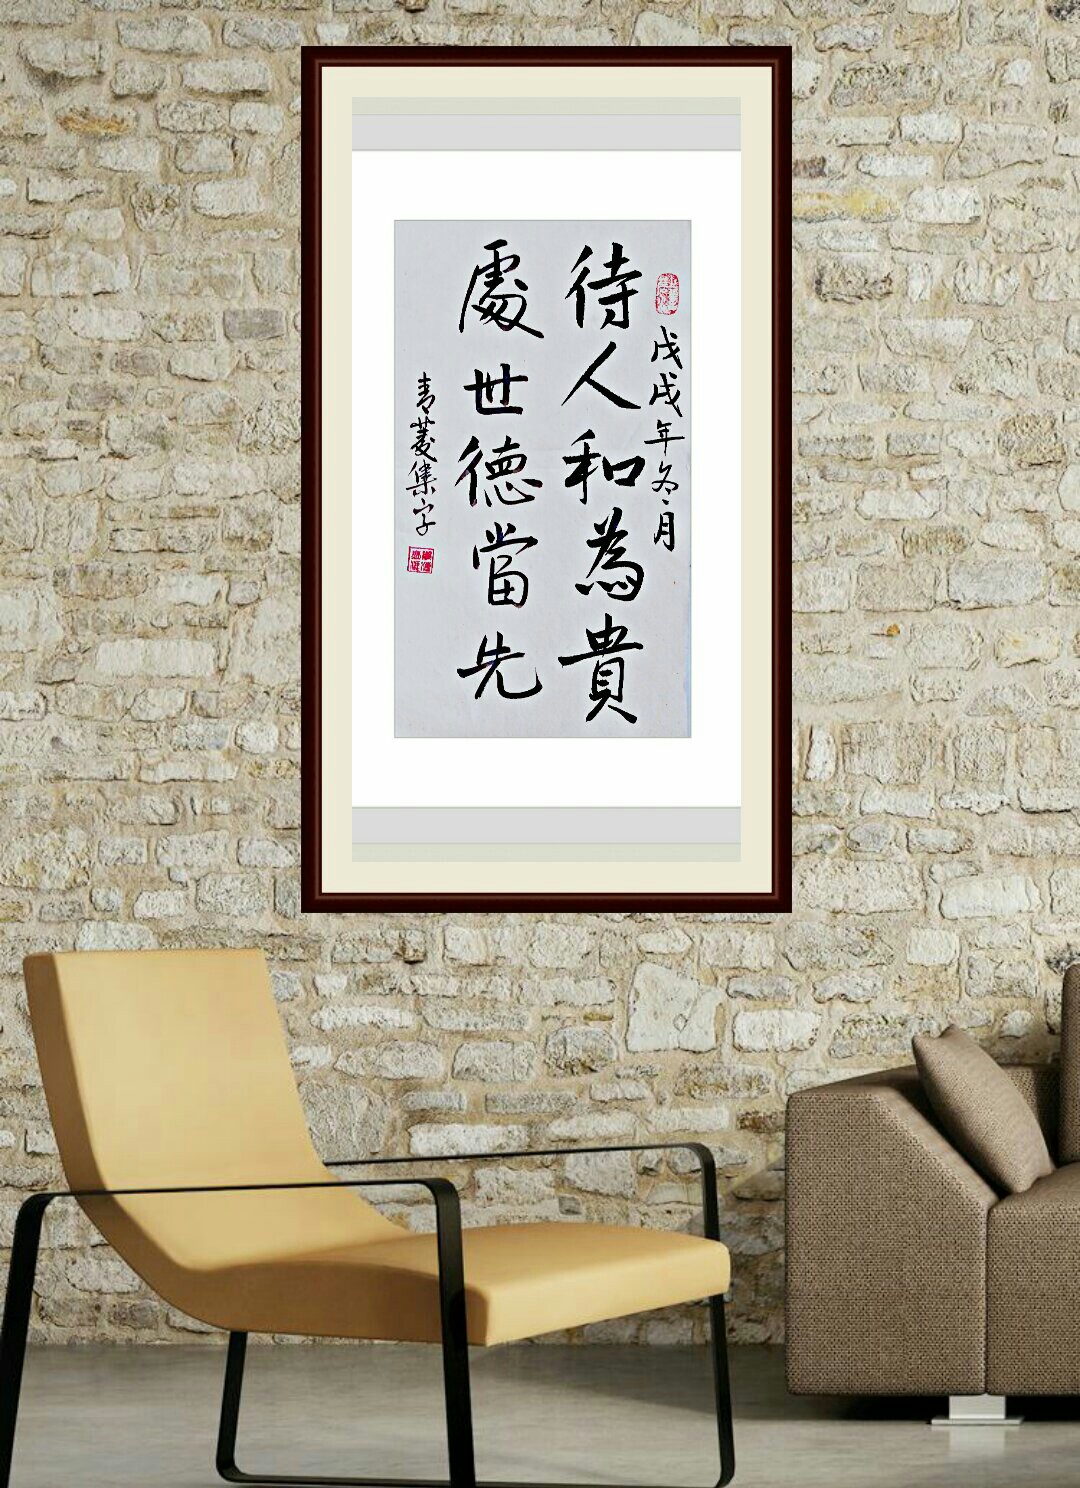 戊戌年冬月
待人和為貴
處世德當先
青菱集字